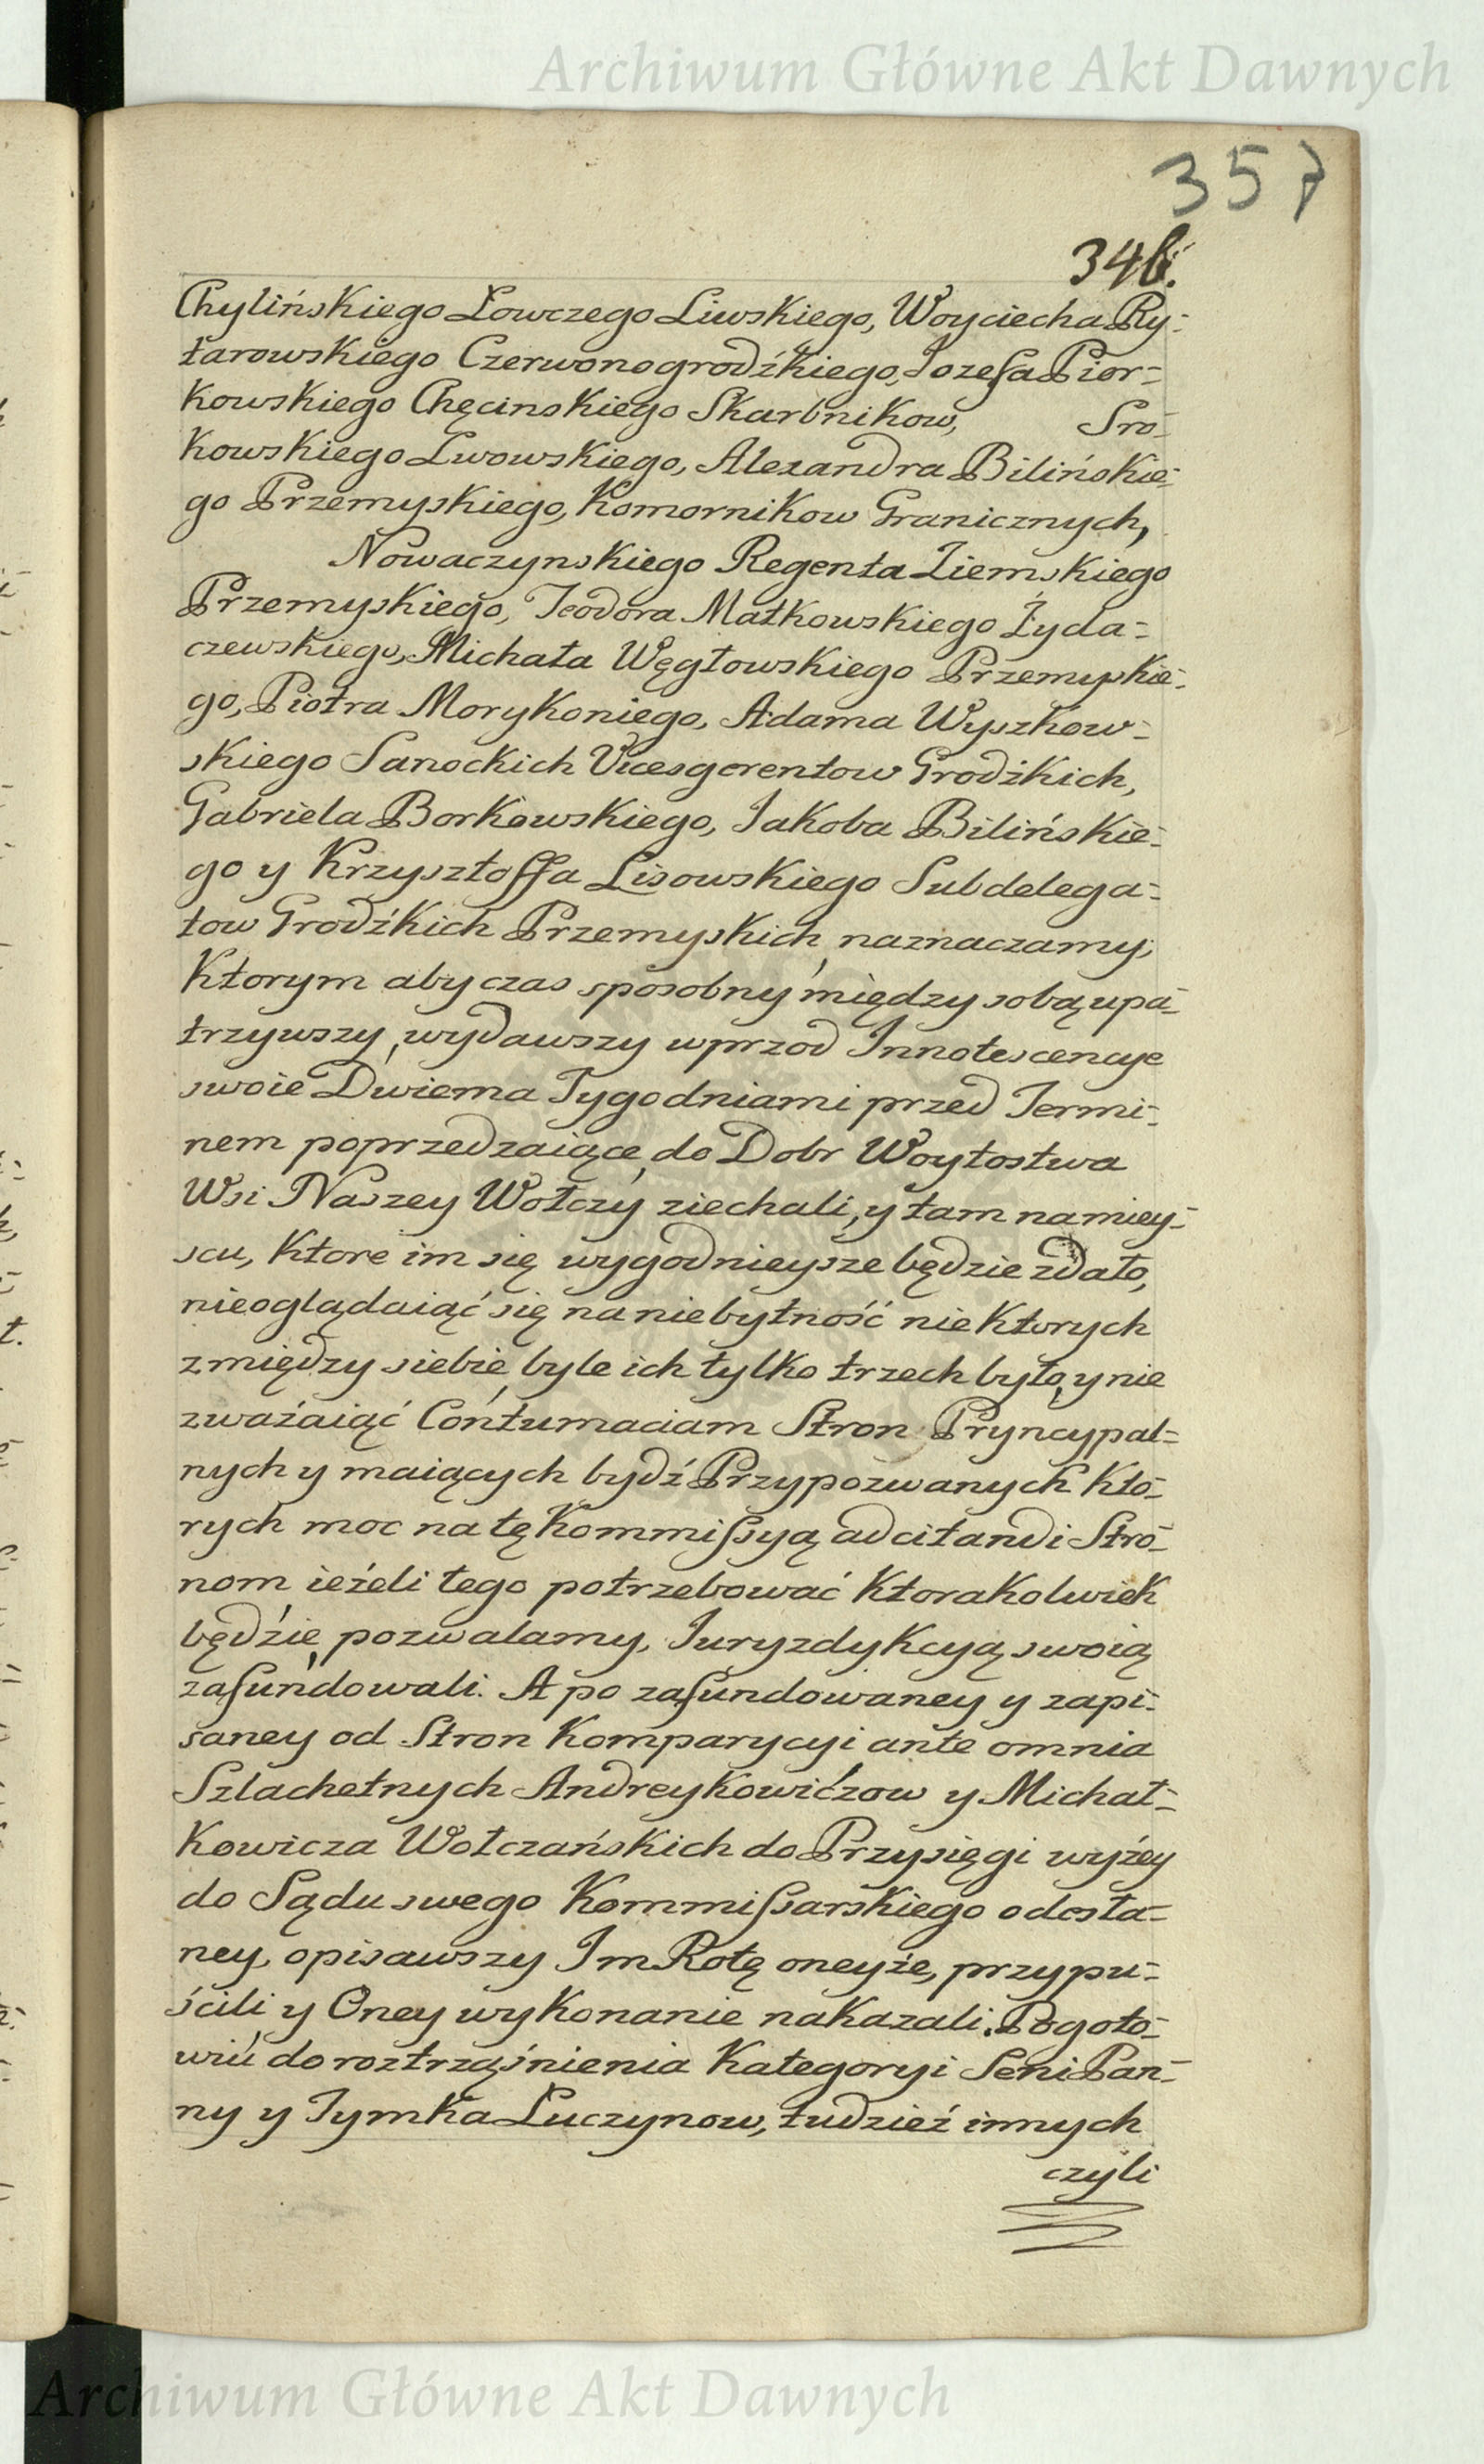 Archiwum Główne Akt Dawnych
357
346.
Chylińskiego Łowczego Liwskiego, Woyciecha Ry-
tarowskiego Czerwonogrodźkiego, Jozefa Pior-
kowskiego Chęcinskiego Skarbnikow, Sro-
kowskiego Lwowskiego, Alexandra Bilińskie-
go Przemyskiego, Komornikow Granicznych,
Nowaczynskiego Regenta Ziemskiego
Przemyskiego, Teodora Matkowskiego Żyda-
czewskiego, Michała Węgłowskiego Przemyskie-
go, Piotra Morykoniego, Adama Wyszkow-
skiego Sanockich Vicesgerentow Grodźkich,
Gabriela Borkowskiego, Jakoba Bilińskie-
go y Krzysztoffa Lisowskiego Subdelega-
tow Grodźkich Przemyskich, naznaczamy;
Ktorym aby czas sposobny między sobą upa-
trzywszy, wydawszy wprzod Innotescencye
swoie Dwiema Tygodniami przed Termi-
nem poprzedzaiące, do Dobr Woytostwa
Wsi Naszey Wołczy ziechali, y tam na miey-
scu, Ktore im się wygodnieysze będzie zdało,
nieoglądaiąć się na niebytność nieKtorych
z między siebie, byle ich tylko trzech było, y nie
zważaiąć Contumaciam Stron Pryncypal-
nych y maiących bydź Przypozwanych Kto-
rych moc na tę Kommissyą adcitandi Stro-
nom, ieżeli tego potrzebować Ktorakolwiek
będzie, pozwalamy, Juryzdykcyą swoią
zafundowali. A po zafundowaney y zapi-
saney od Stron Komparycyi ante omnia
Szlachetnych Andreykowiczow y Michał-
Kowicza Wołczańskich do Przysięgi wyżey
do Sądu swego Kommissarskiego odesła-
ney, opisawszy Im Rotę oneyże, przypu-
ścili, y Oney wykonanie nakazali. Pogoto-
wiu do roztrząśnienia Kategoryi Seni Pan-
ny y Tymka Luczynow, tudzież innych
czyli
Archiwum Główne Akt Dawnych